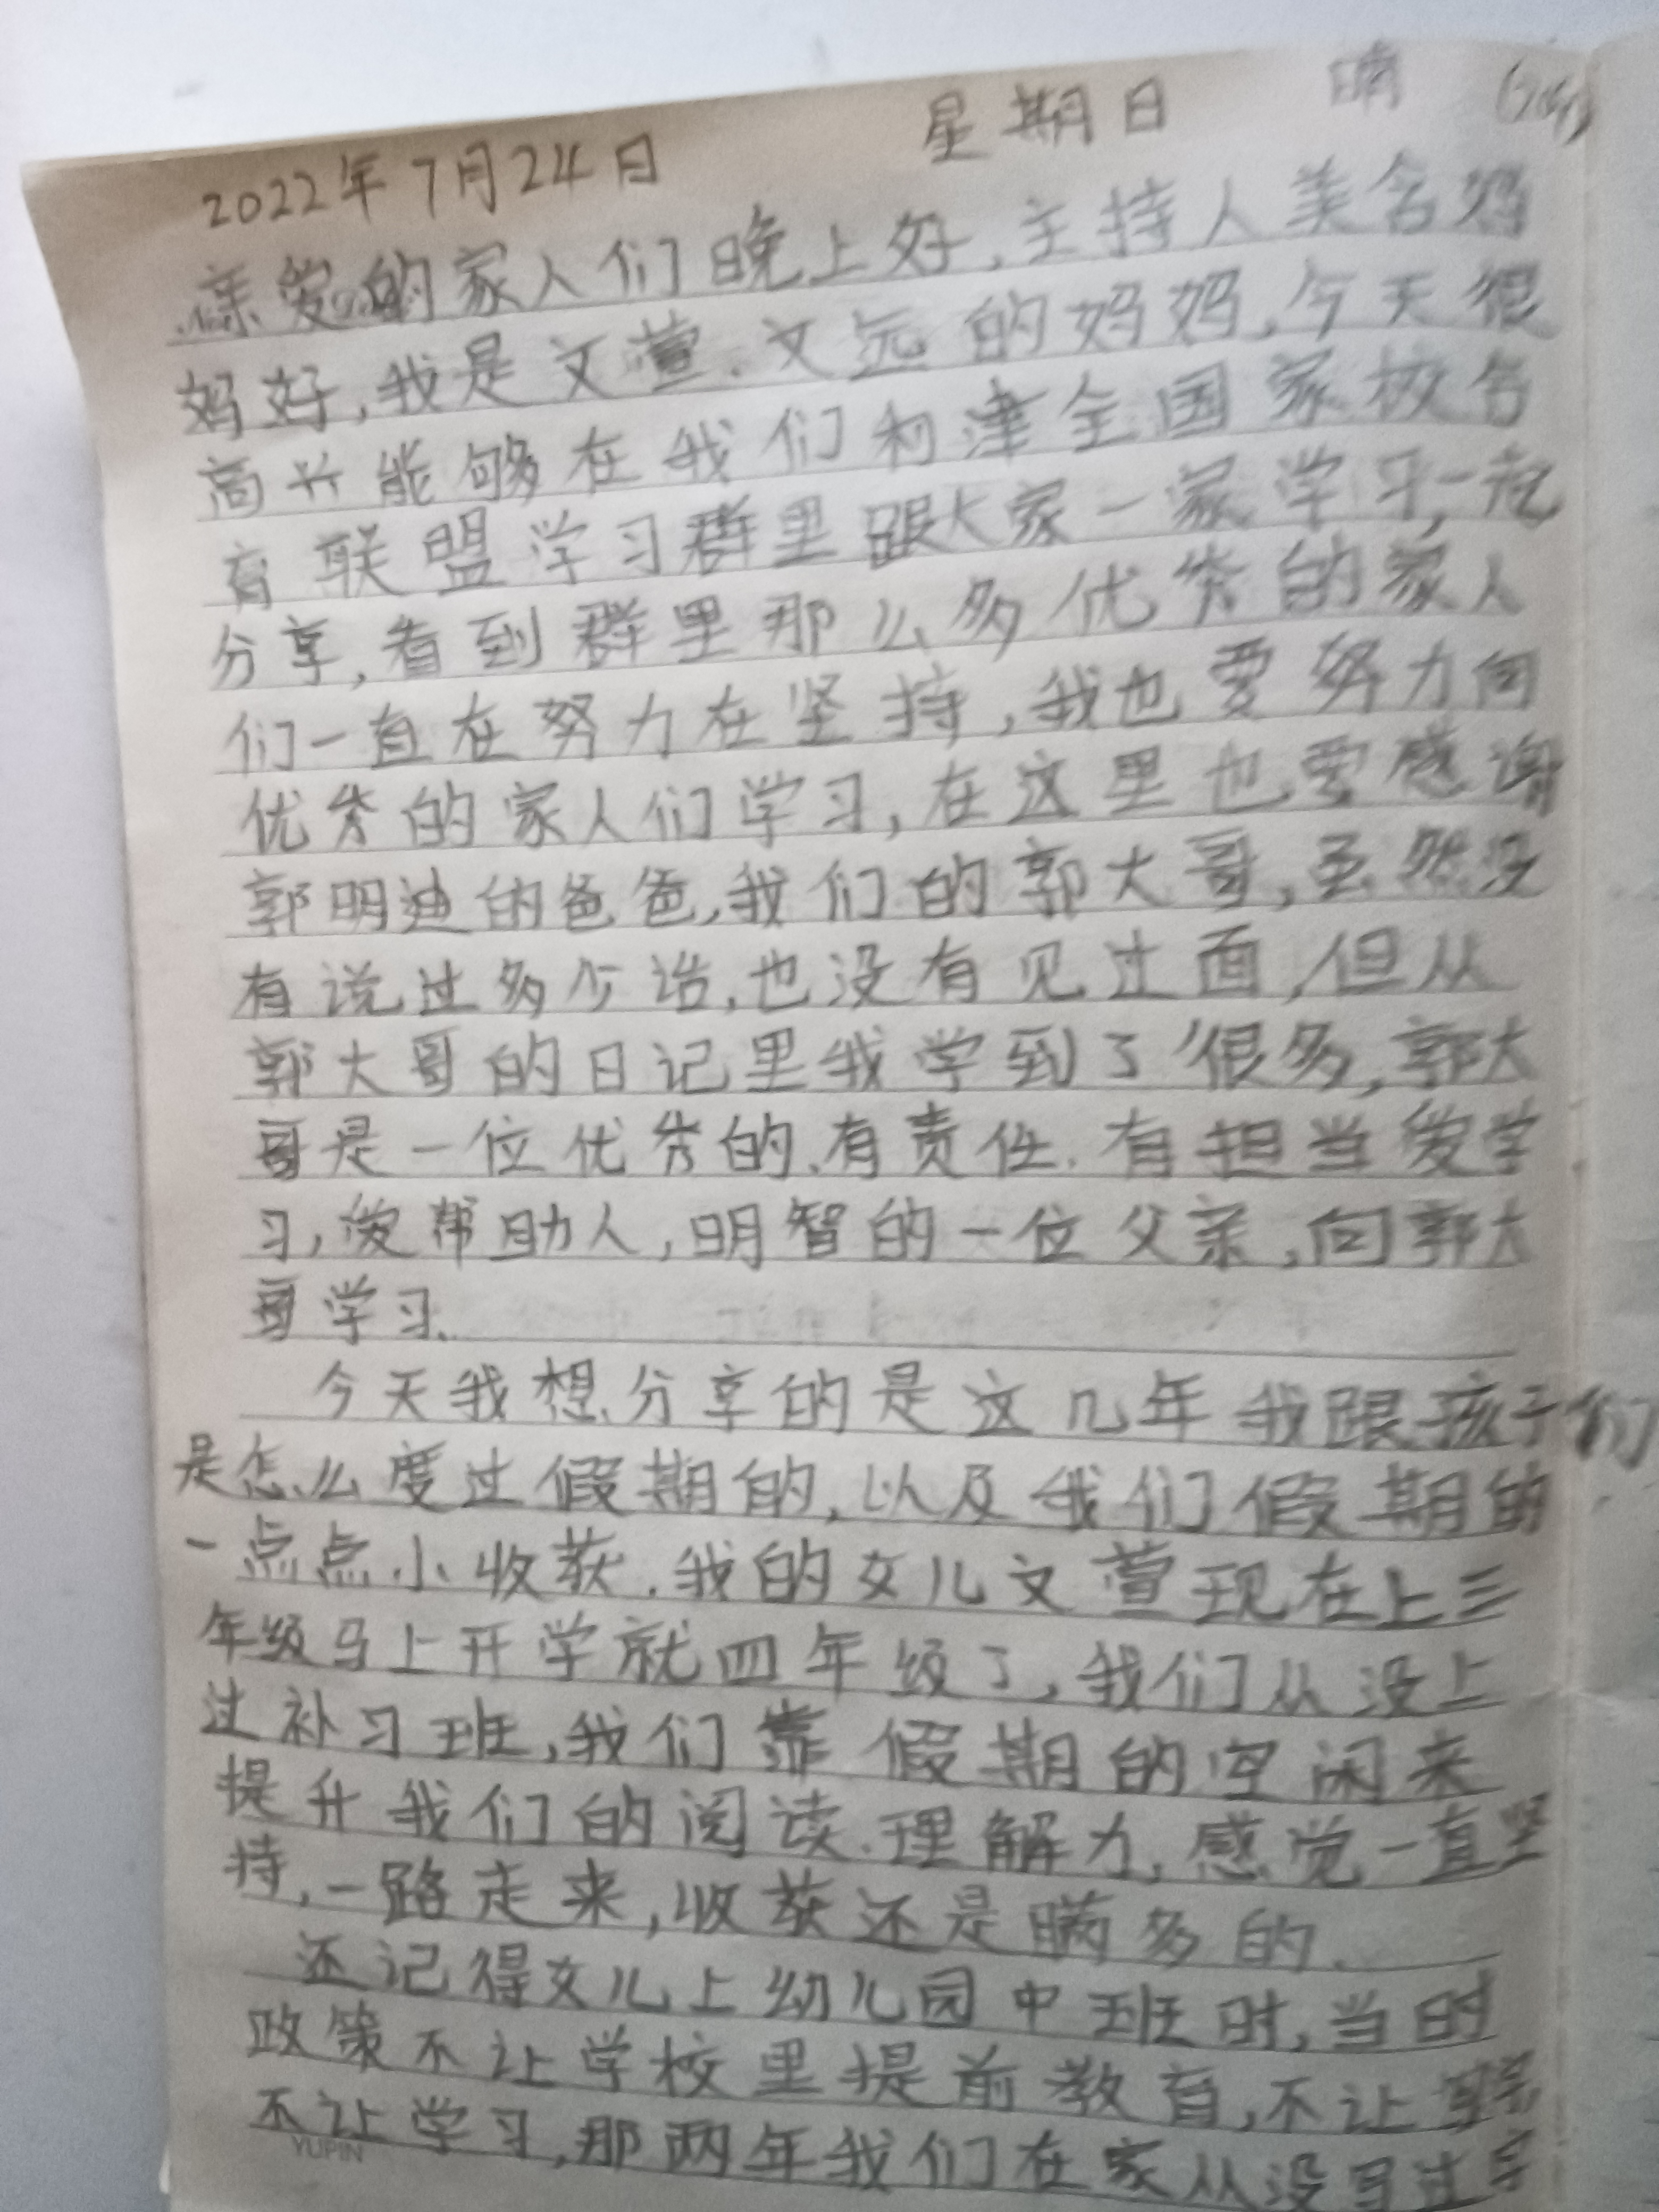 2022年7月24日 星期日 晴
亲爱的家人们晚上好,主持人美含妈
妈好,我是文萱、文远的妈妈,今天很
高兴能够在我们利津全国家校合
育联盟学习群里跟大家一家学习,一起
分享,看到群里那么多优秀的家人
们一直在努力在坚持,我也要努力向
优秀的家人们学习,在这里也要感谢
郭明迪的爸爸,我们的郭大哥,虽然没
有说过多少话,也没有见过面,但从
郭大哥的日记里我学到了很多,郭大
哥是一位优秀的、有责任、有担当爱学
习,爱帮助人,明智的一位父亲,向郭大
哥学习、
今天我想分享的是这几年我跟孩子们
是怎么度过假期的,以及我们假期的
一点点小收获、我的女儿文萱现在上三
年级马上开学就四年级了,我们从没上
过补习班,我们靠假期的空闲来
提升我们的阅读、理解力,感觉一直坚
持,一路走来,收获还是满多的、
还记得女儿上幼儿园中班时,当时
政策不让学校里提前教育,不让
不让学习,那两年我们在家从没写过字
YUPIN